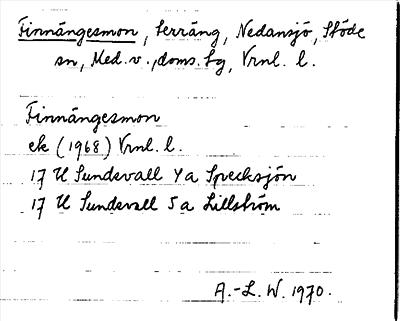 Finnängesmon, terräng, Nedansjö, Stöde
sn, Med. v., doms. lg, Vrnl. l.
Finnängesmon
ek (1968) Vrnl. l.
17 H Sundsvall 4 a Specksjön
17 H Sundsvall 5 a Lillström
A.-L. W. 1970.